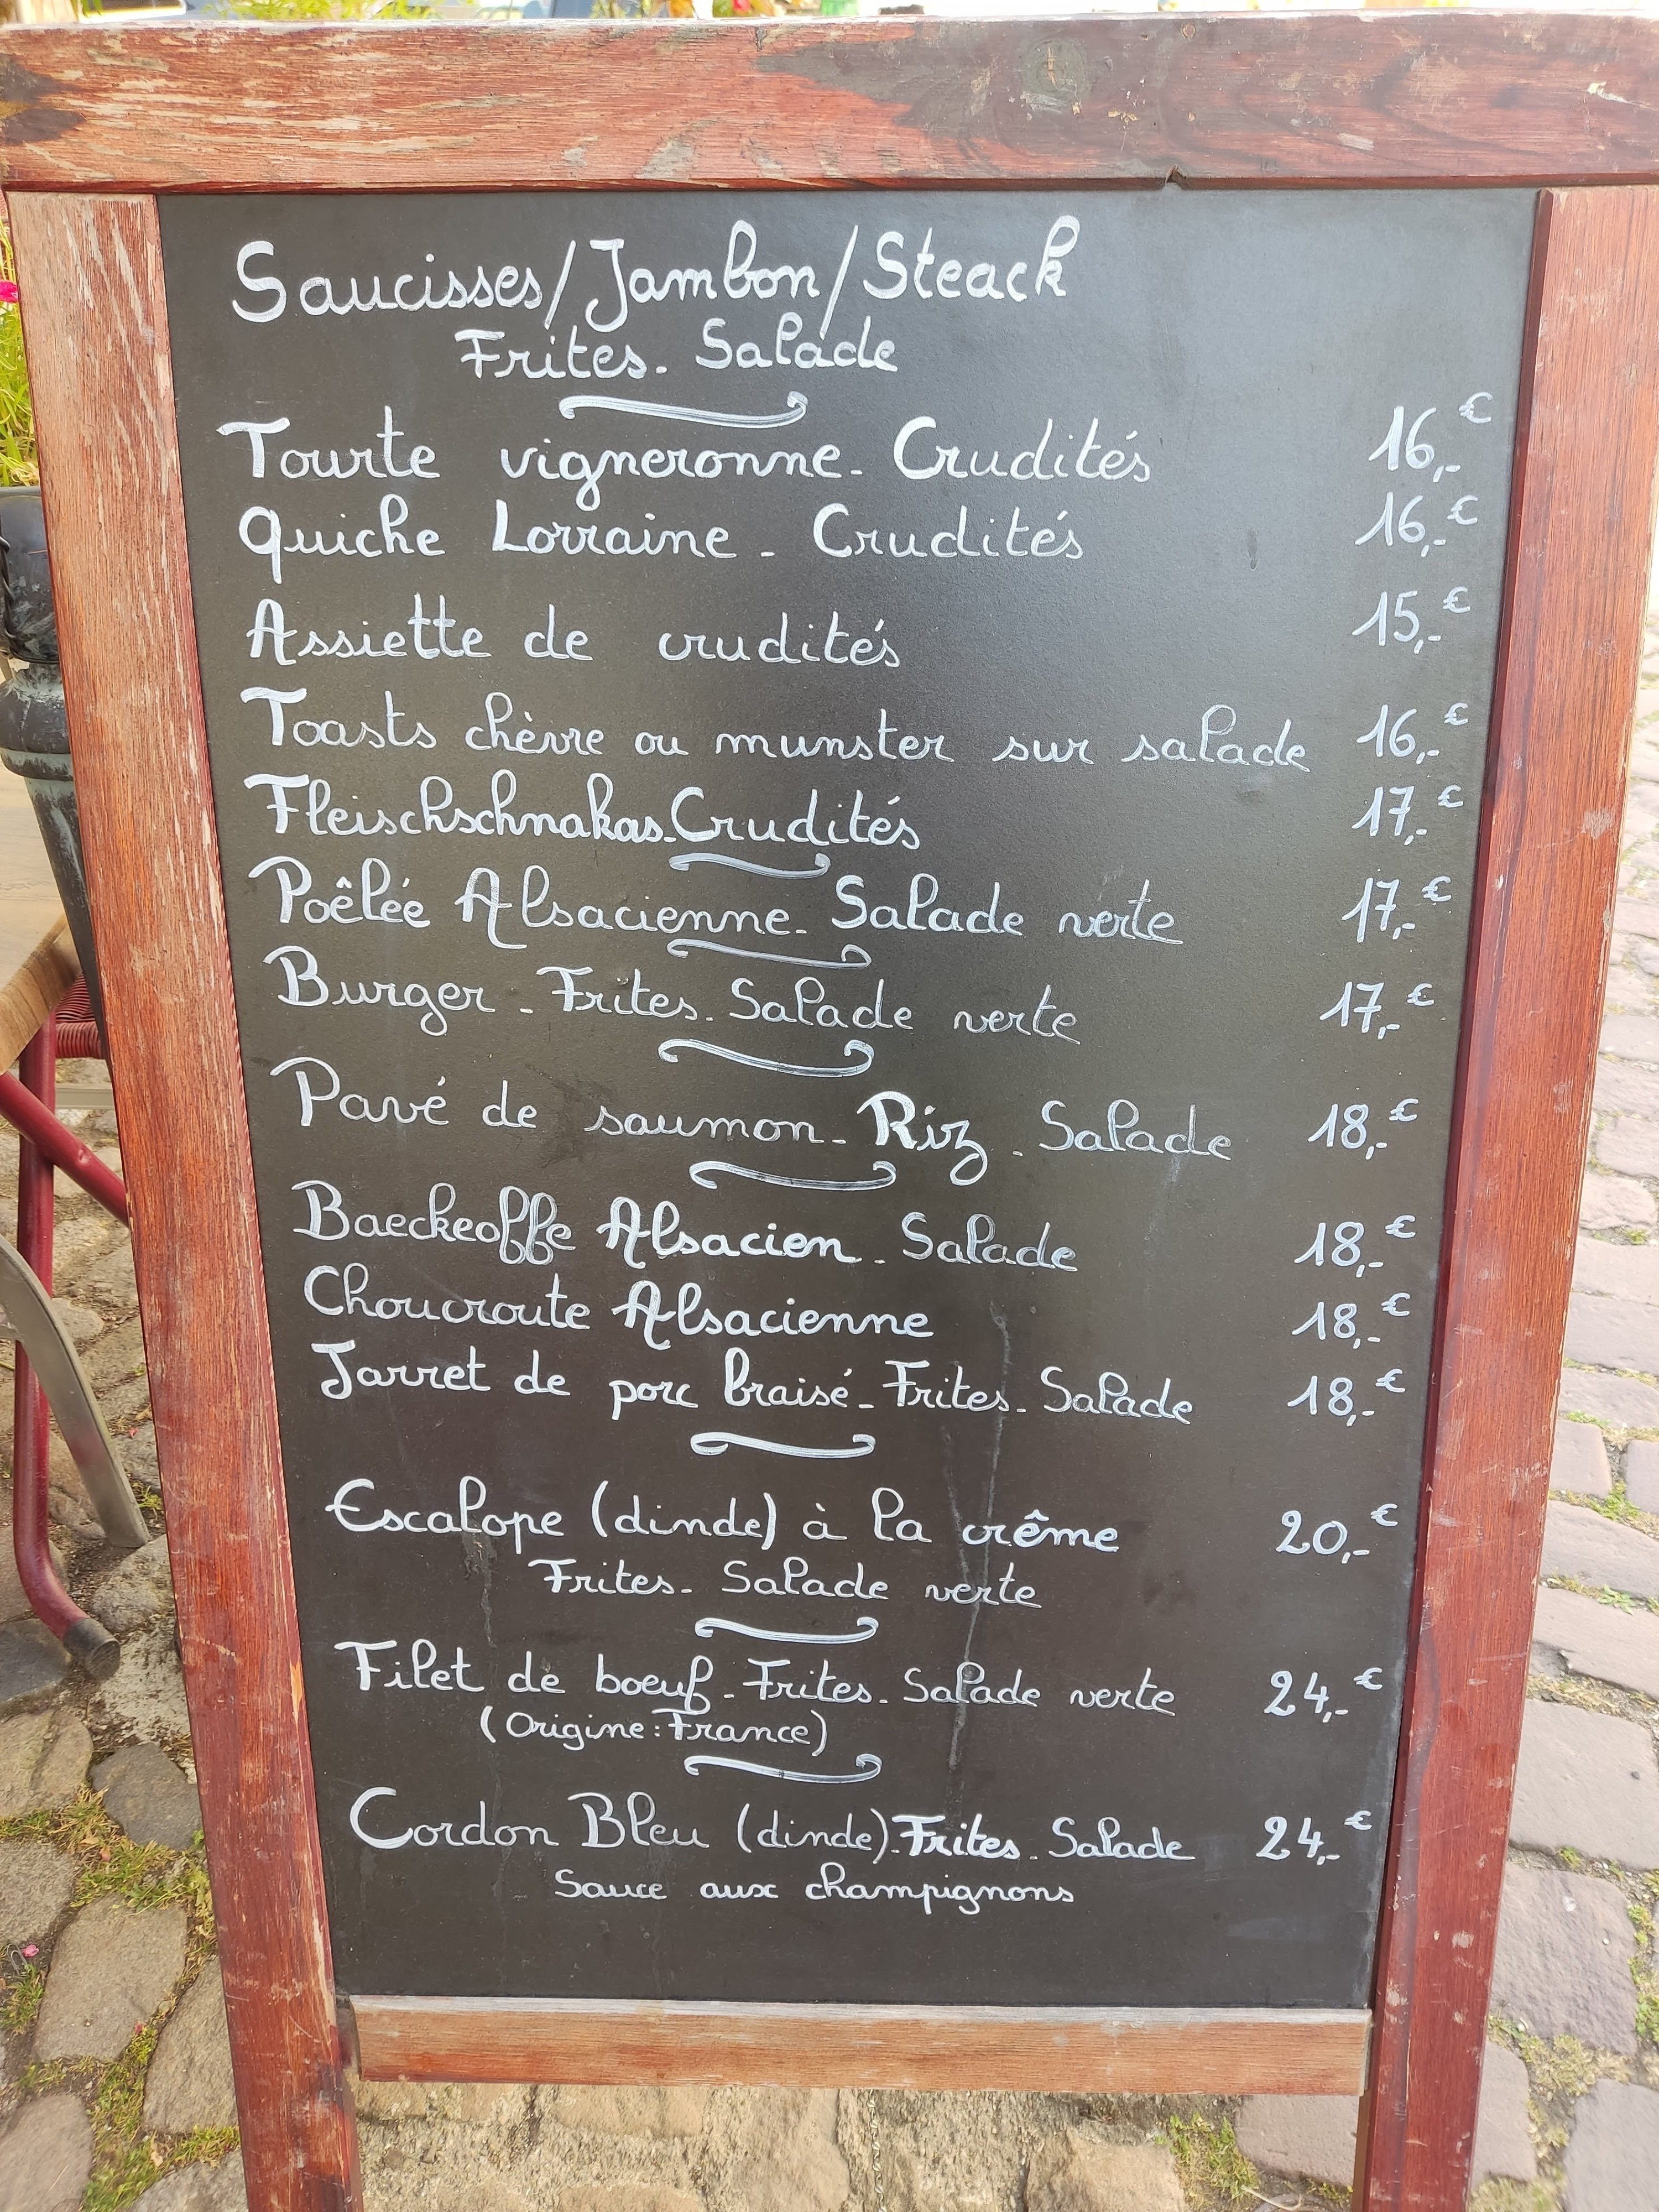 Saucisses/Jambon/Steack
Frites. Salade
Tourte vigneronne. Crudités 16,-€
Quiche Lorraine - Crudités 16,-€
Assiette de crudités 15,-€
Toasts chèvre ou munster sur salade 16,-€
Fleischschnakas. Crudités 17,-€
Poêlée Alsacienne. Salade verte 17,-€
Burger - Frites. Salade verte 17,-€
Pavé de saumon - Riz. Salade 18,-€
Baeckeoffe Alsacien. Salade 18,-€
Choucroute Alsacienne 18,-€
Jarret de porc braisé - Frites. Salade 18,-€
Escalope (dinde) à la crême 20,-€
Frites. Salade verte
Filet de boeuf - Frites. Salade verte 24,-€
(Origine: France)
Cordon Bleu (dinde). Frites. Salade 24,-€
Sauce aux champignons